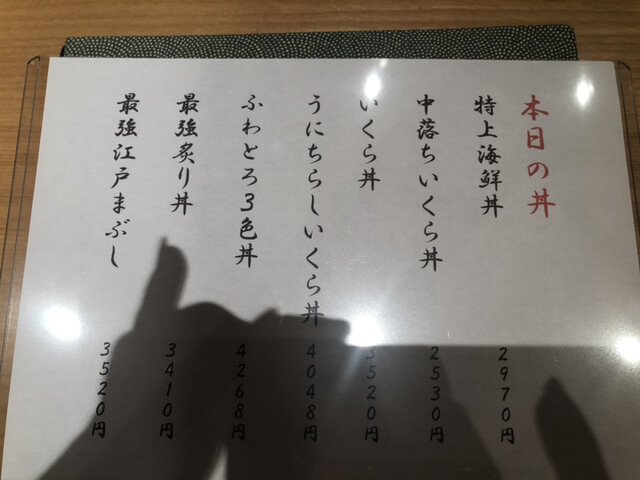 本日の丼
特上海鮮丼 2970円
中落ちいくら丼 2530円
いくら丼 3520円
うにちらしいくら丼 4048円
ふわとろ3色丼 4268円
最強炙り丼 3410円
最強江戸まぶし 3520円